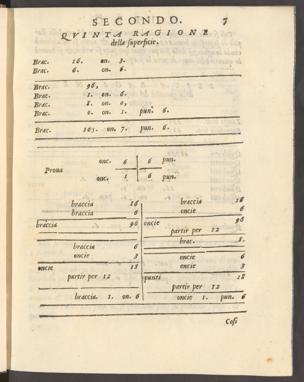 SECONDO. 7
QVINTA RAGIONE
delle superficie.
Brac. 16. on. 3.
Brac. 6. on. 6.
Brac. 96.
Brac. 1. on. 6.
Brac. 8. on. 0.
Brac. 0. on. 1. pun. 6.
Brac. 105. on. 7. pun. 6.
onc. 6 6 pun.
Proua
onc. 1 6 pun.
braccia 16
braccia 6
braccia 96
braccia 6
oncie 3
oncie 18
partir per 12
braccia. 1. on. 6
braccia 16
oncie 6
oncie 96
partir per 12
brac. 8.
oncie 6
oncie 3
punti 18
partir per 12
oncie 1. pun. 6
Cosi